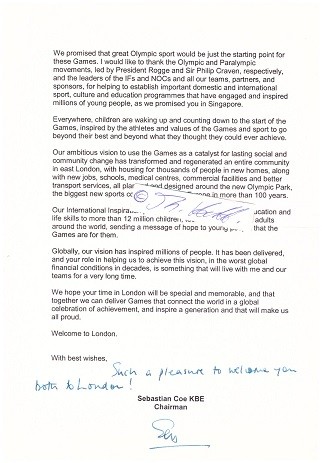 We promised that great Olympic sport would be just the starting point for
these Games. I would like to thank the Olympic and Paralympic
movements, led by President Rogge and Sir Philip Craven, respectively,
and the leaders of the IFs and NOCs and all our teams, partners, and
sponsors, for helping to establish important domestic and international
sport, culture and education programmes that have engaged and inspired
millions of young people, as we promised you in Singapore.
Everywhere, children are waking up and counting down to the start of the
Games, inspired by the athletes and values of the Games and sport to go
beyond their best and beyond what they thought they could ever achieve.
Our ambitious vision to use the Games as a catalyst for lasting social and
community change has transformed and regenerated an entire community
in east London, with housing for thousands of people in new homes, along
with new jobs, schools, medical centres, commercial facilities and better
transport services, all and designed around the new Olympic Park,
the biggest new sports in more than 100 years.
Our International
life skills to more than 12 million children, adults
around the world, sending a message of hope to that the
Games are for them.
Globally, our vision has inspired millions of people. It has been delivered,
and your role in helping us to achieve this vision, in the worst global
financial conditions in decades, is something that will live with me and our
teams for a very long time.
We hope your time in London will be special and memorable, and that
together we can deliver Games that connect the world in a global
celebration of achievement, and inspire a generation and that will make us
all proud.
Welcome to London.
With best wishes,
Such a pleasure to welcome you
both to London!
Sebastian Coe KBE
Chairman
Seb